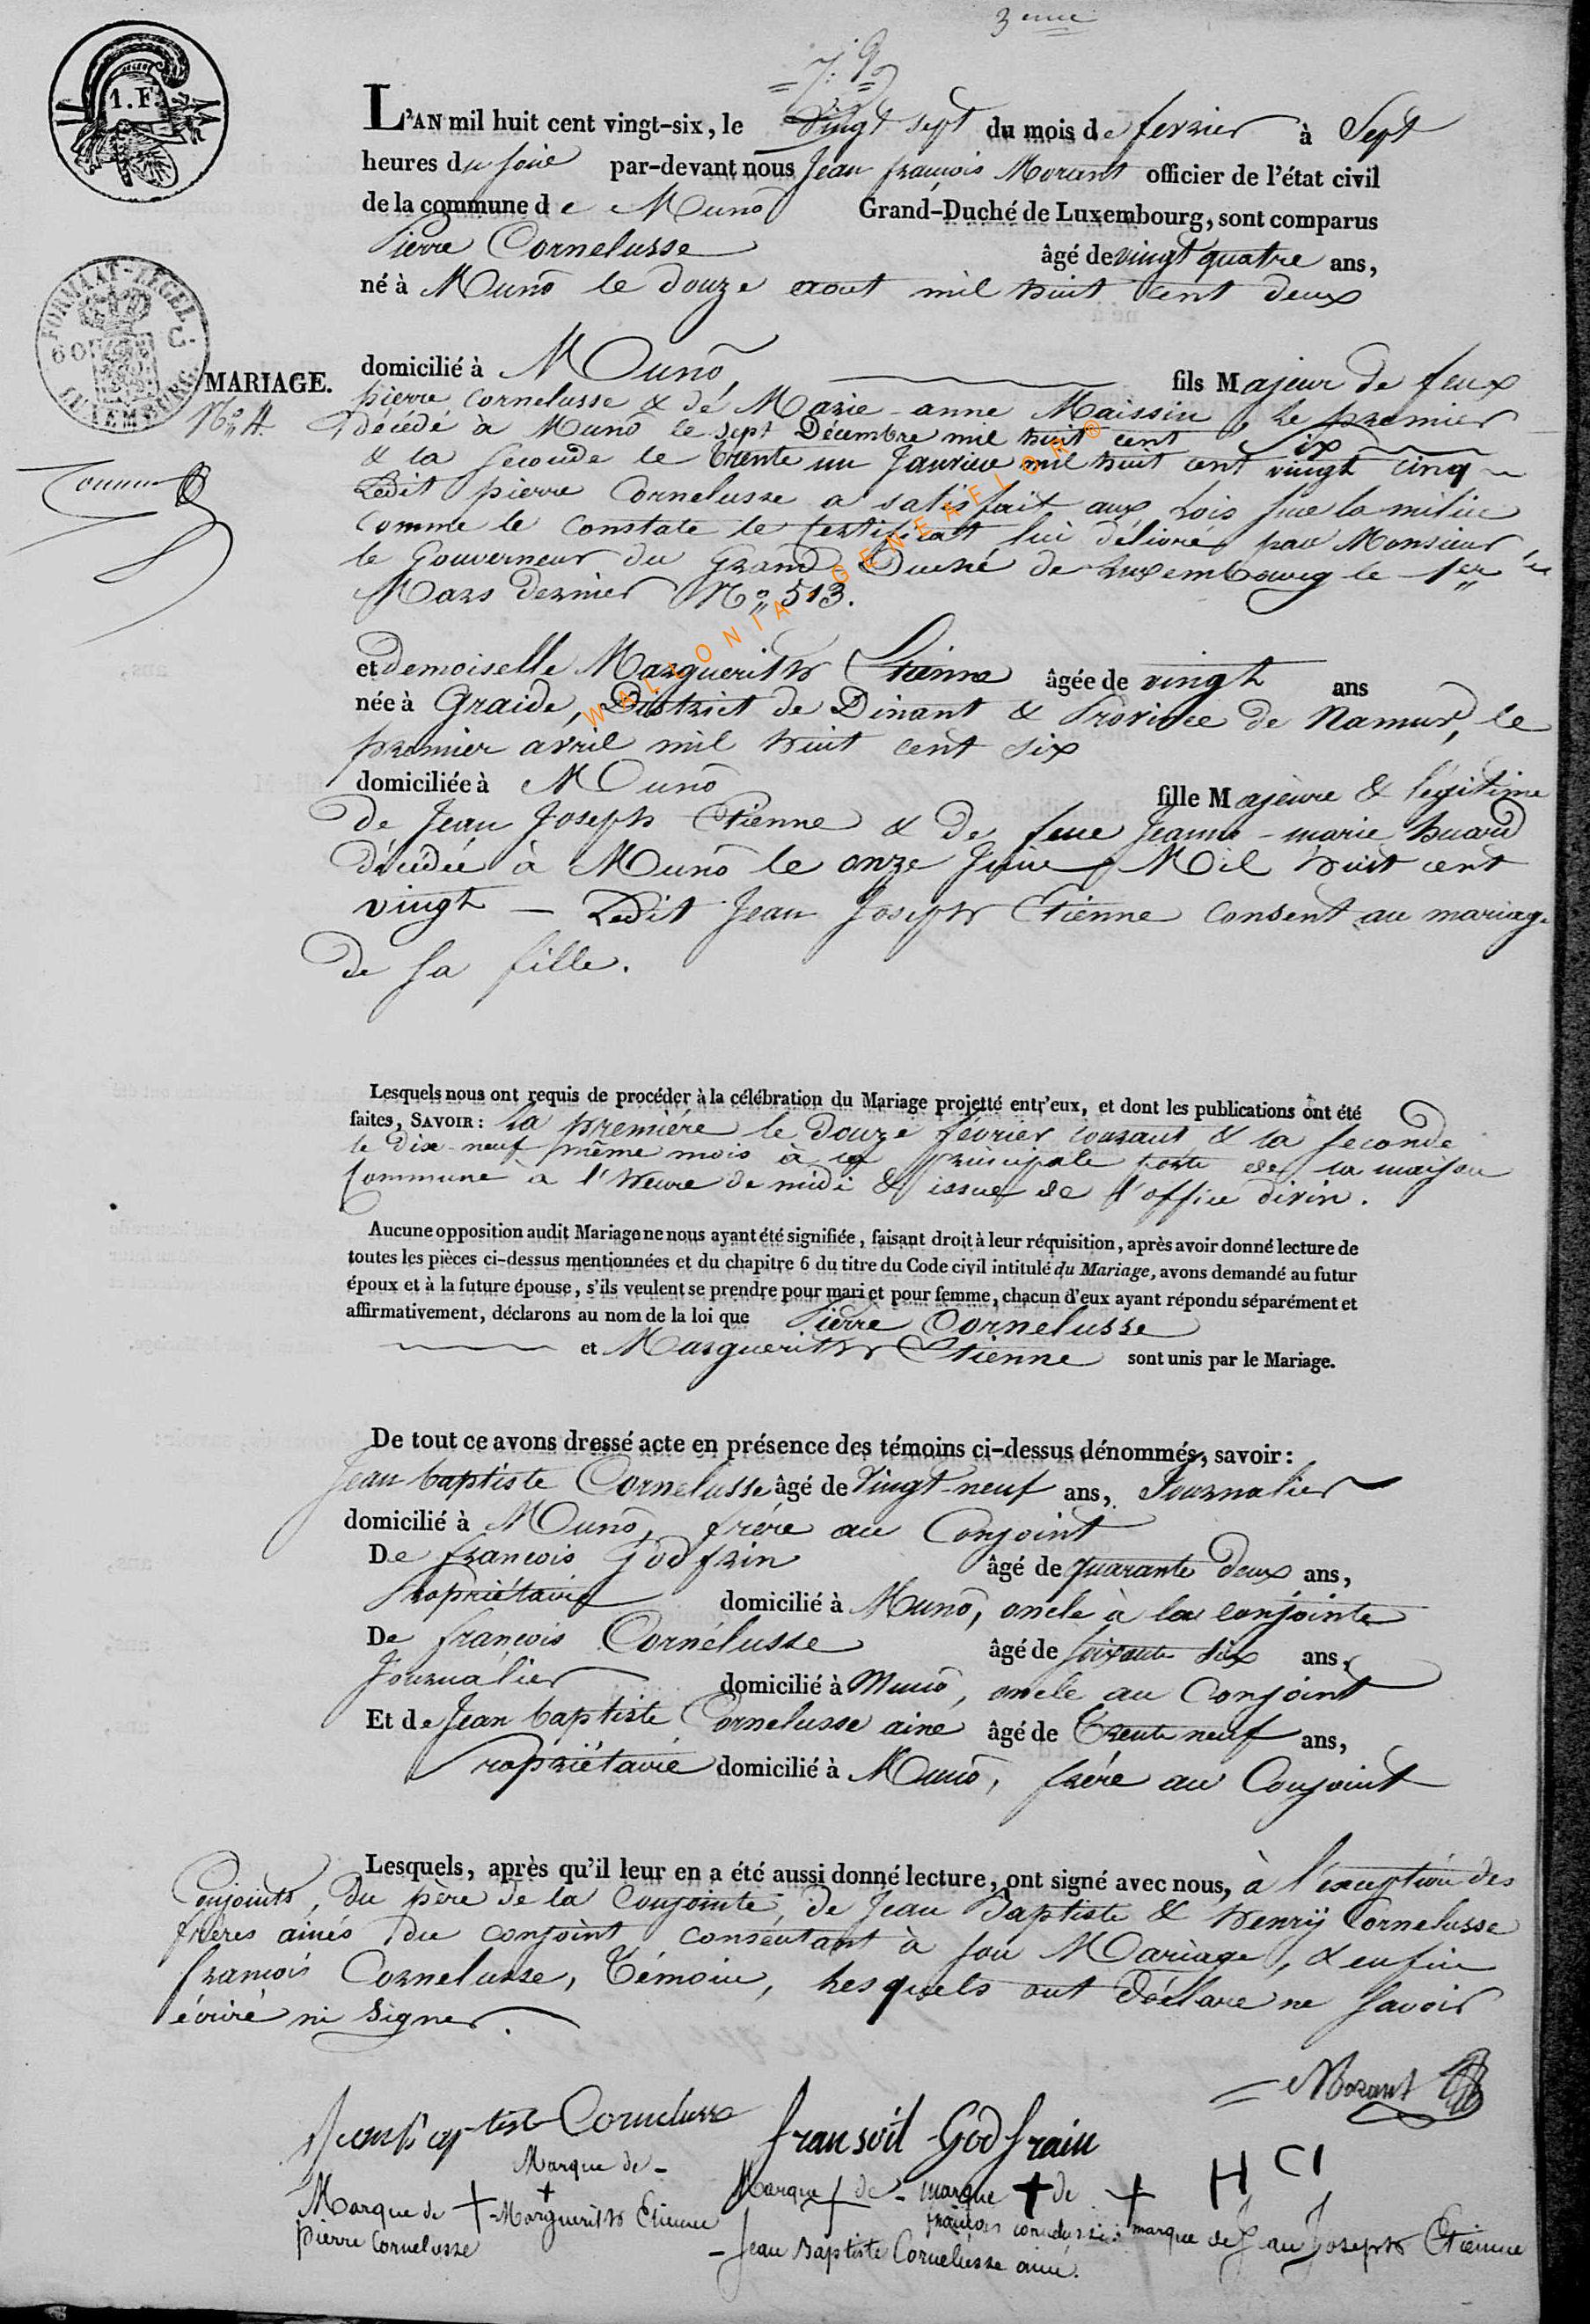 3eme
1. F.
L'AN mil huit cent vingt-six, le vingt sept du mois de fevrier à Sept
heures du soir par-devant nous Jean françois Morant officier de l'état civil
de la commune de Muno Grand-Duché de Luxembourg, sont comparus
Pierre Cornelusse âgé de vingt quatre ans,
né à Muno le douze aout mil huit cent deux
FORMAAT-ZEGEL
60 C.
LUXEMBURG
domicilié à Muno, fils Majeur de feux
MARIAGE.
N° 4.
pierre Cornelusse & de Marie-anne Maissin, le premier
décédé à Muno le sept Décembre mil huit cent six
& la seconde le trente un Janvier mil huit cent vingt cinq
Ledit pierre Cornelusse a satisfait aux Lois sur la milice
comme le constate le certificat lui délivré par Monsieur
le Gouverneur du Grand Duché de Luxembourg le 1er
Mars dernier N° 513.
WALLONIA - GENEAFLOR®
et demoiselle Margueritte Etienne âgée de vingt ans
née à Graide, District de Dinant & Province de Namur, le
premier avril mil huit cent six
domiciliée à Muno fille Majeure & légitime
de Jean Joseph Etienne & de feue Jeanne-marie huard
décédée à Muno le onze Juin Mil huit cent
vingt — Ledit Jean Joseph Etienne consent au mariage
de sa fille.
Lesquels nous ont requis de procéder à la célébration du Mariage projetté entr'eux, et dont les publications ont été
faites, SAVOIR: La première le douze février courant & la seconde
le dix-neuf même mois à la principale porte de la maison
Commune à l'heure de midi & issue de l'office divin.
Aucune opposition audit Mariage ne nous ayant été signifiée, faisant droit à leur réquisition, après avoir donné lecture de
toutes les pièces ci-dessus mentionnées et du chapitre 6 du titre du Code civil intitulé du Mariage, avons demandé au futur
époux et à la future épouse, s'ils veulent se prendre pour mari et pour femme, chacun d'eux ayant répondu séparément et
affirmativement, déclarons au nom de la loi que Pierre Cornelusse
et Margueritte Etienne sont unis par le Mariage.
De tout ce avons dressé acte en présence des témoins ci-dessus dénommés, savoir:
Jean baptiste Cornelusse âgé de Vingt-neuf ans, Journalier
domicilié à Muno, frère au Conjoint
De françois Godfrin âgé de quarante deux ans,
Propriétaire domicilié à Muno, oncle à la conjointe
De françois Cornélusse âgé de soixante dix ans,
Journalier domicilié à Muno, oncle au Conjoint
Et de Jean baptiste Cornelusse ainé âgé de Trente neuf ans,
Propriétaire domicilié à Muno, frère au Conjoint
Lesquels, après qu'il leur en a été aussi donné lecture, ont signé avec nous, à l'exception des
Conjoints, du père de la Conjointe, de Jean Baptiste & henry Cornelusse
frères ainés du conjoint consentant à son Mariage, & enfin
françois Cornelusse, Témoin, Lesquels ont Déclaré ne savoir
écrire ni signer.
Morant
Jean baptiste Cornelusse
fransoit Godfrain
Marque de
Marque de - marque de H Cl
Marque de Margueritte Etienne
pierre Cornelusse
françois cornelusse marque de Jean Joseph Etienne
Jean Baptiste Cornelusse ainé.